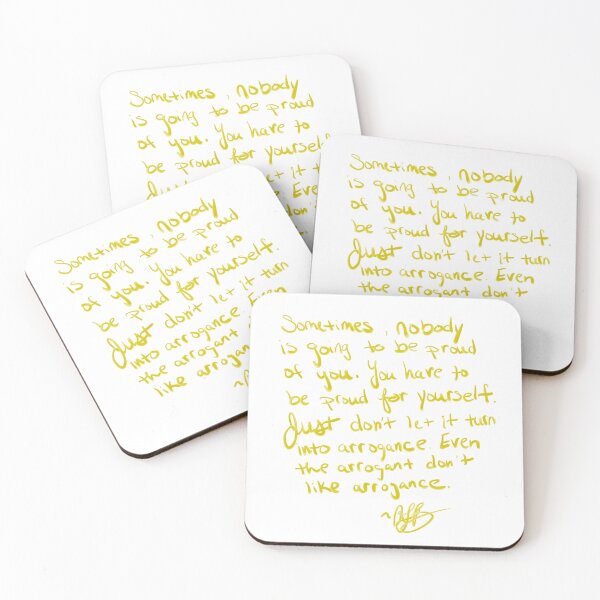 Sometimes, nobody
is going to be proud
of you. You have to
be proud for yourself
let it
Even
Sometimes, nobody
is going to be proud
of you. You have to
be proud for yourself.
Just don't let it turn
into arrogance. Even
the arrogant don't
Sometimes, nobody
is going to be proud
of you. You have to
be proud for yourself.
Just don't let it turn
into arrogance. Even
the arrogant
like
Sometimes, nobody
is going to be proud
of you. You have to
be proud for yourself.
Just don't let it turn
into arrogance. Even
the arrogant don't
like arrogance.